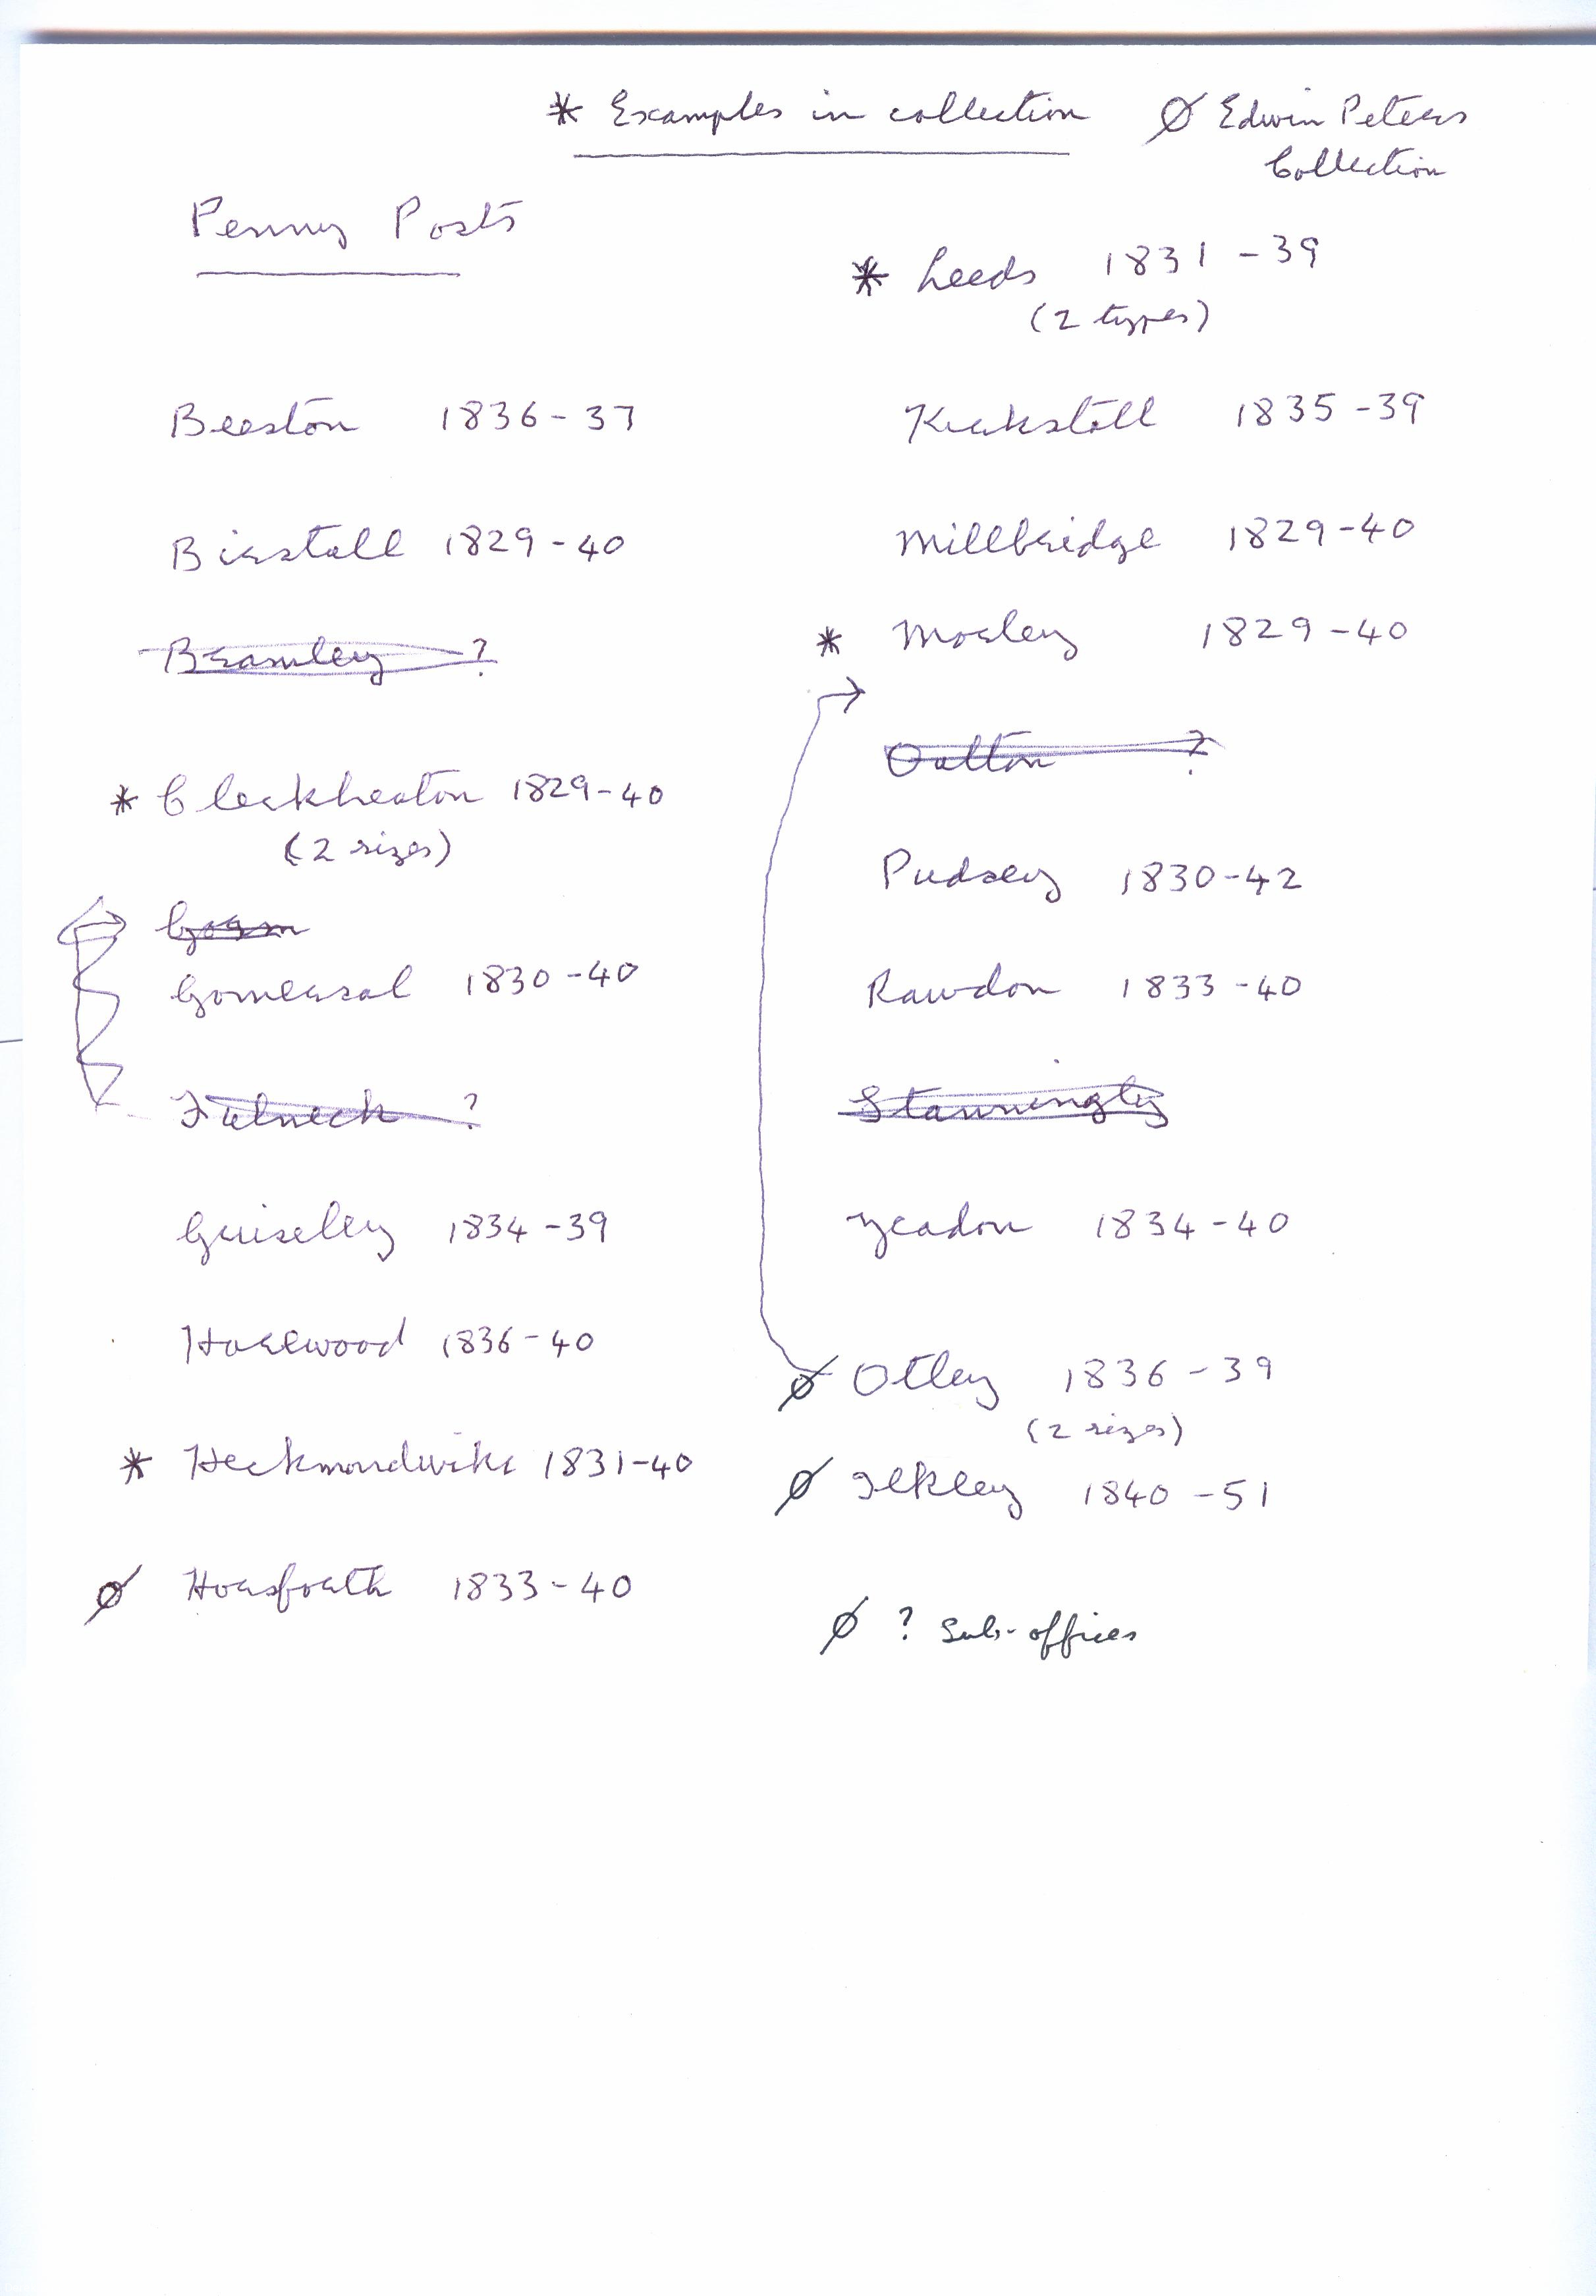 * Examples in collection Ø Edwin Peters
Collection
Penny Posts
Beeston 1836-37
Birstall 1829-40
Bramley ?
* Cleckheaton 1829-40
(2 sizes)
Gom
Gomersal 1830-40
Fulneck ?
Guiseley 1834-39
Harewood 1836-40
* Heckmondwike 1831-40
Ø Horsforth 1833-40
* Leeds 1831-39
(2 types)
Kirkstall 1835-39
Millbridge 1829-40
* Morley 1829-40
Oulton ?
Pudsey 1830-42
Rawdon 1833-40
Stanningly
Yeadon 1834-40
Ø Otley 1836-39
(2 sizes)
Ø Ilkley 1840-51
Ø ? Sub-offices